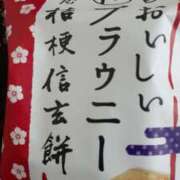 おいしい
ブラウニー
桔梗信玄餅